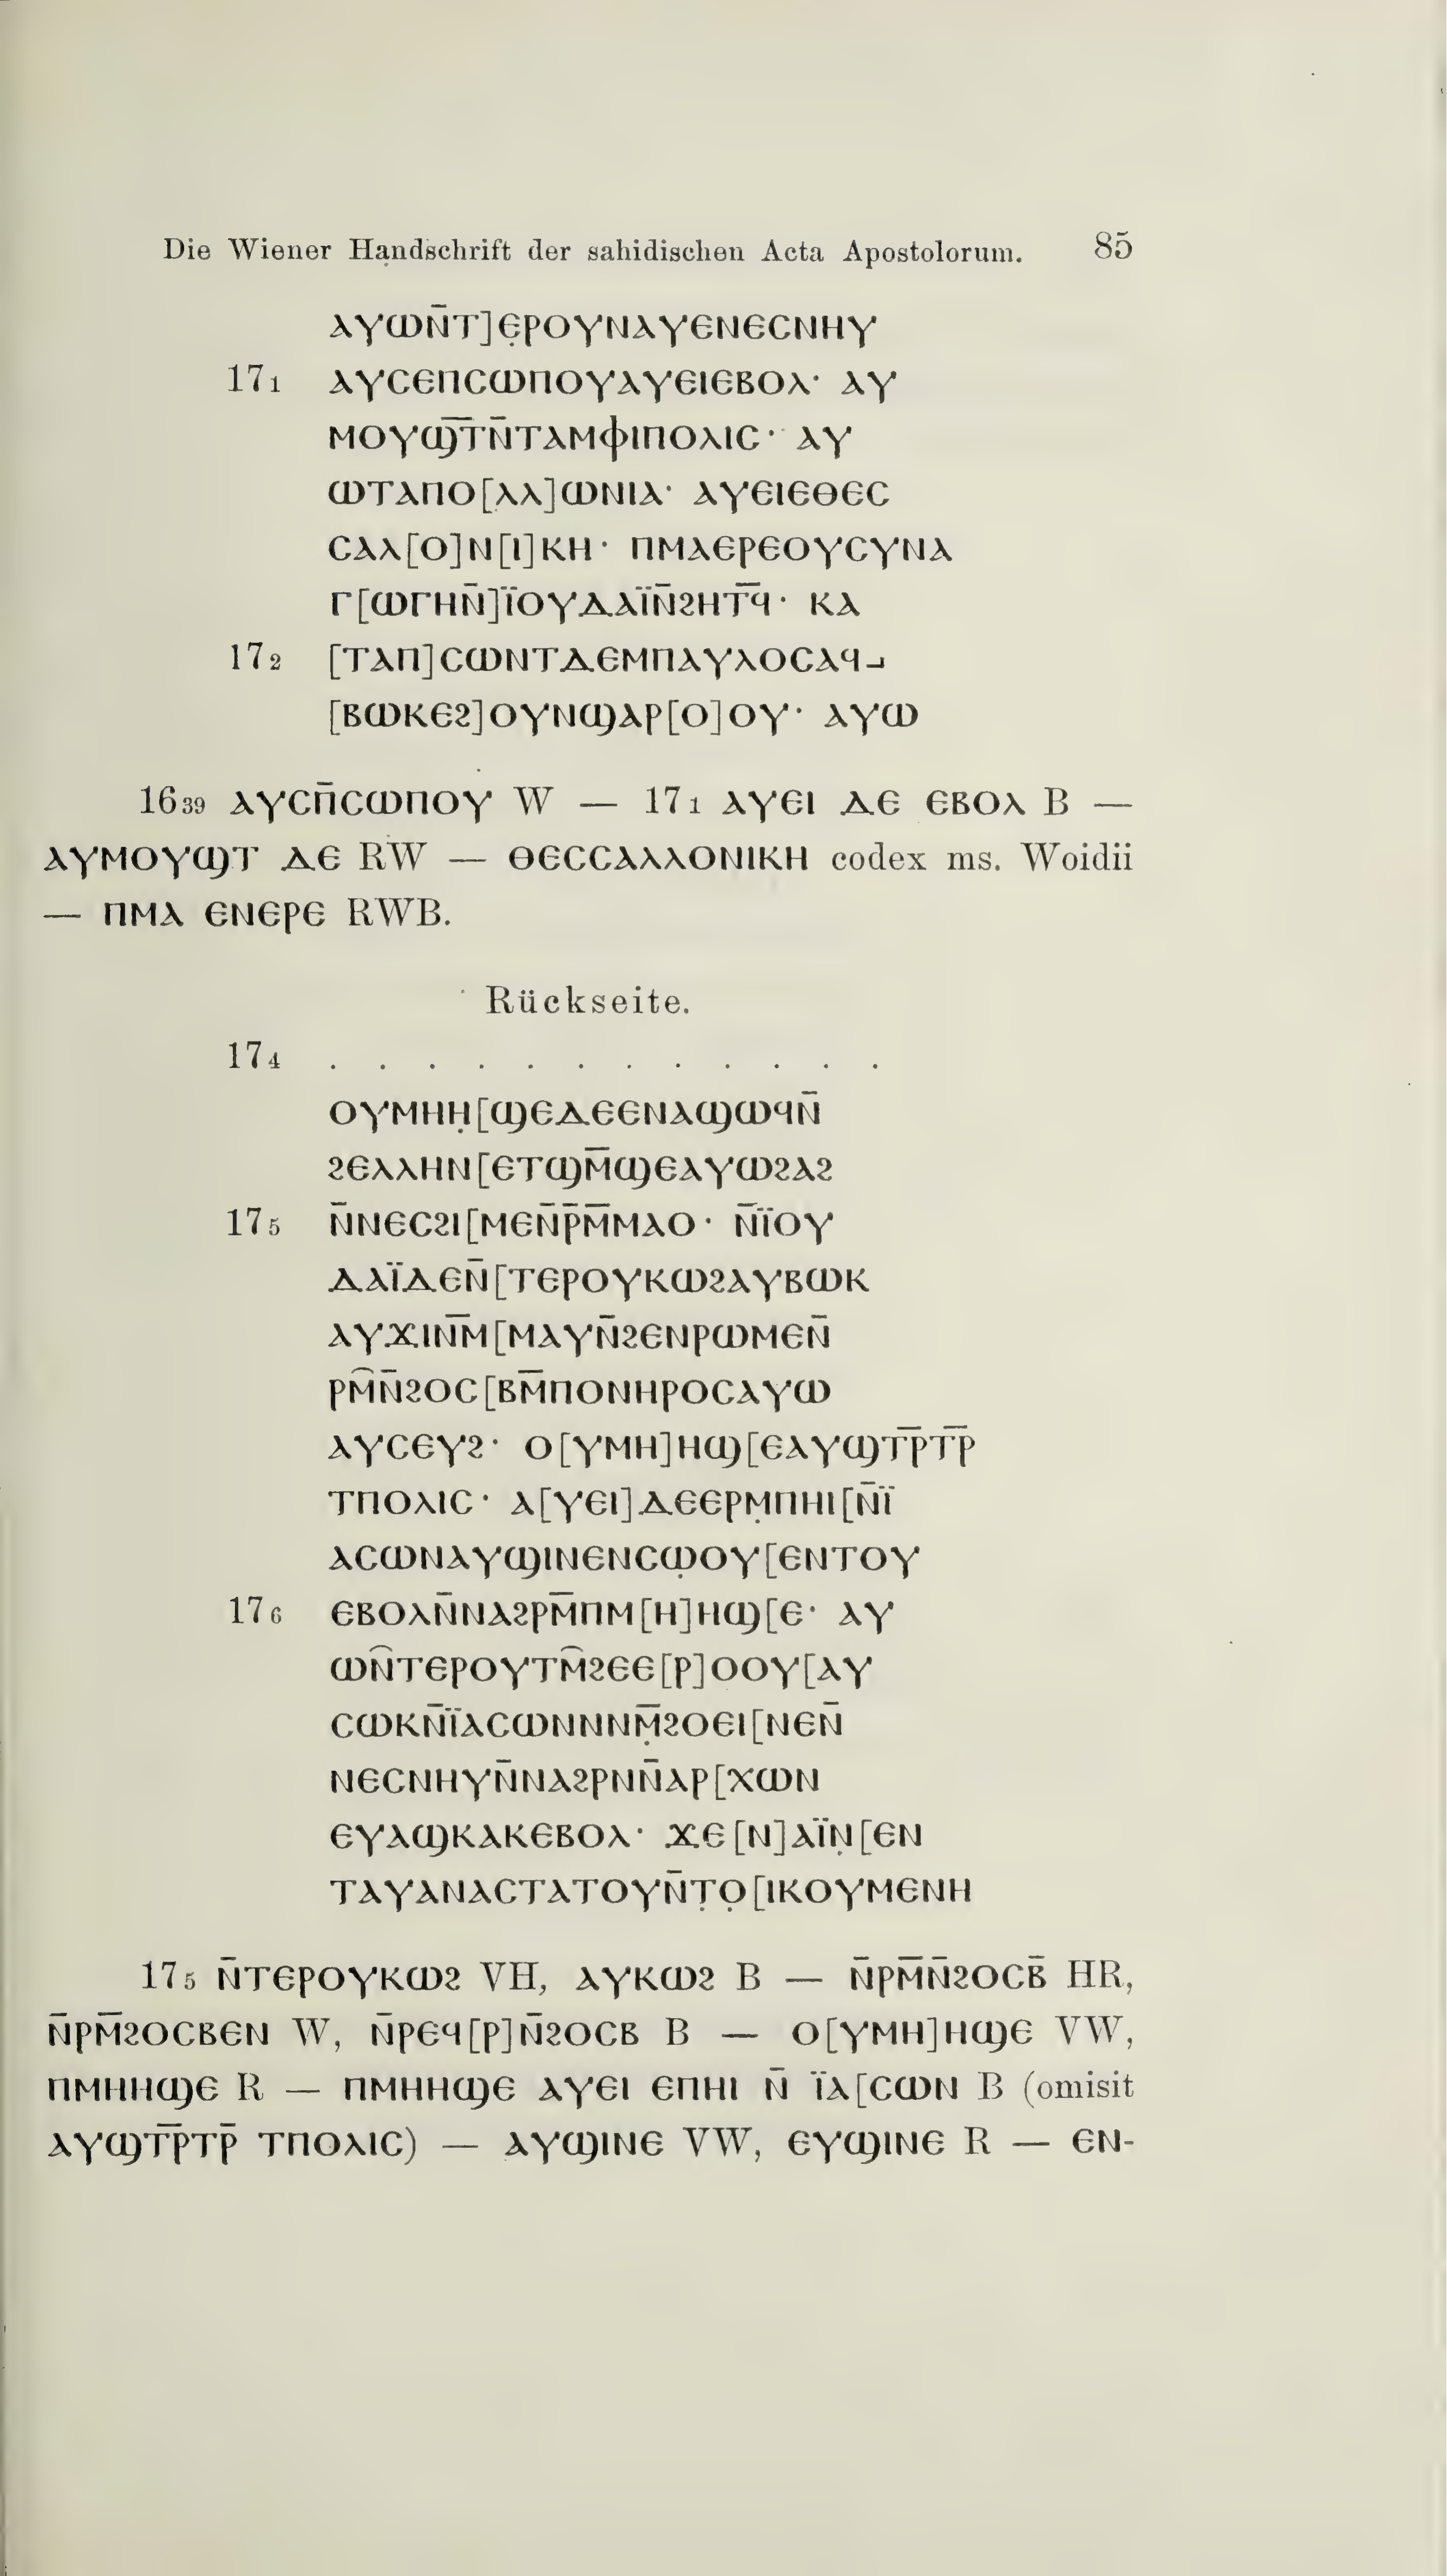 Die Wiener Handschrift der sahidischen Acta Apostolorum. 85
ⲁⲩⲱⲛ̄ⲧ]ⲉ̣ⲣⲟⲩⲛⲁⲩⲉⲛⲉⲥⲛⲏⲩ
17₁ ⲁⲩⲥⲉⲡⲥⲱⲡⲟⲩⲁⲩⲉⲓⲉⲃⲟⲗ· ⲁⲩ
ⲙⲟⲩϣ̄ⲧ̄ⲛ̄ⲧⲁⲙⲫⲓⲡⲟⲗⲓⲥ· ⲁⲩ
ⲱⲧⲁⲡⲟ[ⲗⲗ]ⲱⲛⲓⲁ· ⲁⲩⲉⲓⲉⲑⲉⲥ
ⲥⲁⲗ[ⲟ]ⲛ[ⲓ]ⲕⲏ· ⲡⲙⲁⲉⲣⲉⲟⲩⲥⲩⲛⲁ
ⲅ[ⲱⲅⲏⲛ̄]ⲓ̈ⲟⲩⲇⲁⲓ̈ⲛ̄ϩⲏⲧ̄ϥ̄· ⲕⲁ
17₂ [ⲧⲁⲡ]ⲥⲱⲛⲧⲇⲉⲙⲡⲁⲩⲗⲟⲥⲁϥ⨼
[ⲃⲱⲕⲉϩ]ⲟⲩⲛϣⲁⲣ[ⲟ]ⲟⲩ· ⲁⲩⲱ
16₃₉ ⲁⲩⲥⲡ̄ⲥⲱⲡⲟⲩ W — 17₁ ⲁⲩⲉⲓ ⲇⲉ ⲉⲃⲟⲗ B —
ⲁⲩⲙⲟⲩϣⲧ ⲇⲉ RW — ⲑⲉⲥⲥⲁⲗⲗⲟⲛⲓⲕⲏ codex ms. Woidii
— ⲡⲙⲁ ⲉⲛⲉⲣⲉ RWB.
Rückseite.
17₄ . . . . . . . . . . . .
ⲟⲩⲙⲏⲏ̣[ϣⲉⲇⲉⲉⲛⲁϣⲱϥⲛ̄
ϩⲉⲗⲗⲏⲛ[ⲉⲧϣⲙ̄ϣⲉⲁⲩⲱϩⲁϩ
17₅ ⲛ̄ⲛⲉⲥϩⲓ[ⲙⲉⲛ̄ⲣ̄ⲙ̄ⲙⲁⲟ· ⲛ̄ⲓ̈ⲟⲩ
ⲇⲁⲓ̈ⲇⲉⲛ̄[ⲧⲉⲣⲟⲩⲕⲱϩⲁⲩⲃⲱⲕ
ⲁⲩϫⲓⲛ̄ⲙ̄[ⲙⲁⲩⲛ̄ϩⲉⲛⲣⲱⲙⲉⲛ̄
ⲣⲙ̑ⲛ̄ϩⲟⲥ[ⲃⲙ̄ⲡⲟⲛⲏⲣⲟⲥⲁⲩⲱ
ⲁⲩⲥⲉⲩϩ· ⲟ[ⲩⲙⲏ]ⲏϣ[ⲉⲁⲩϣⲧ̄ⲣ̄ⲧ̄ⲣ̄
ⲧⲡⲟⲗⲓⲥ· ⲁ[ⲩⲉⲓ]ⲇⲉⲉⲣⲙ̣ⲡⲏⲓ[ⲛ̄ⲓ̈
ⲁⲥⲱⲛⲁⲩϣⲓⲛⲉⲛⲥⲱ̣ⲟⲩ[ⲉⲛⲧⲟⲩ
17₆ ⲉⲃⲟⲗⲛ̄ⲛⲁϩⲣⲙ̄ⲡⲙ[ⲏ]ⲏϣ[ⲉ· ⲁⲩ
ⲱⲛ̑ⲧⲉⲣⲟⲩⲧⲙ̑ϩⲉⲉ[ⲣ]ⲟⲟⲩ[ⲁⲩ
ⲥⲱⲕⲛ̄ⲓ̈ⲁⲥⲱⲛⲛⲛⲙ̣̄ϩⲟⲉⲓ[ⲛⲉⲛ̄
ⲛⲉⲥⲛⲏⲩⲛ̄ⲛⲁϩⲣⲛⲛ̄ⲁⲣ[ⲭⲱⲛ
ⲉⲩⲁϣⲕⲁⲕⲉⲃⲟⲗ· ϫⲉ[ⲛ]ⲁⲓ̈ⲛ̣[ⲉⲛ
ⲧⲁⲩⲁⲛⲁⲥⲧⲁⲧⲟⲩⲛ̄ⲧ̣ⲟ̣[ⲓⲕⲟⲩⲙⲉⲛⲏ
17₅ ⲛ̄ⲧⲉⲣⲟⲩⲕⲱϩ VH, ⲁⲩⲕⲱϩ B — ⲛ̄ⲣⲙ̄ⲛ̄ϩⲟⲥⲃ̄ HR,
ⲛ̄ⲣⲙ̄ϩⲟⲥⲃⲉⲛ W, ⲛ̄ⲣⲉϥ[ⲣ]ⲛ̄ϩⲟⲥⲃ B — ⲟ[ⲩⲙⲏ]ⲏϣⲉ VW,
ⲡⲙⲏⲏϣⲉ R — ⲡⲙⲏⲏϣⲉ ⲁⲩⲉⲓ ⲉⲡⲏⲓ ⲛ̄ ⲓ̈ⲁ[ⲥⲱⲛ B (omisit
ⲁⲩϣⲧ̄ⲣ̄ⲧⲣ̄ ⲧⲡⲟⲗⲓⲥ) — ⲁⲩϣⲓⲛⲉ VW, ⲉⲩϣⲓⲛⲉ R — ⲉⲛ-